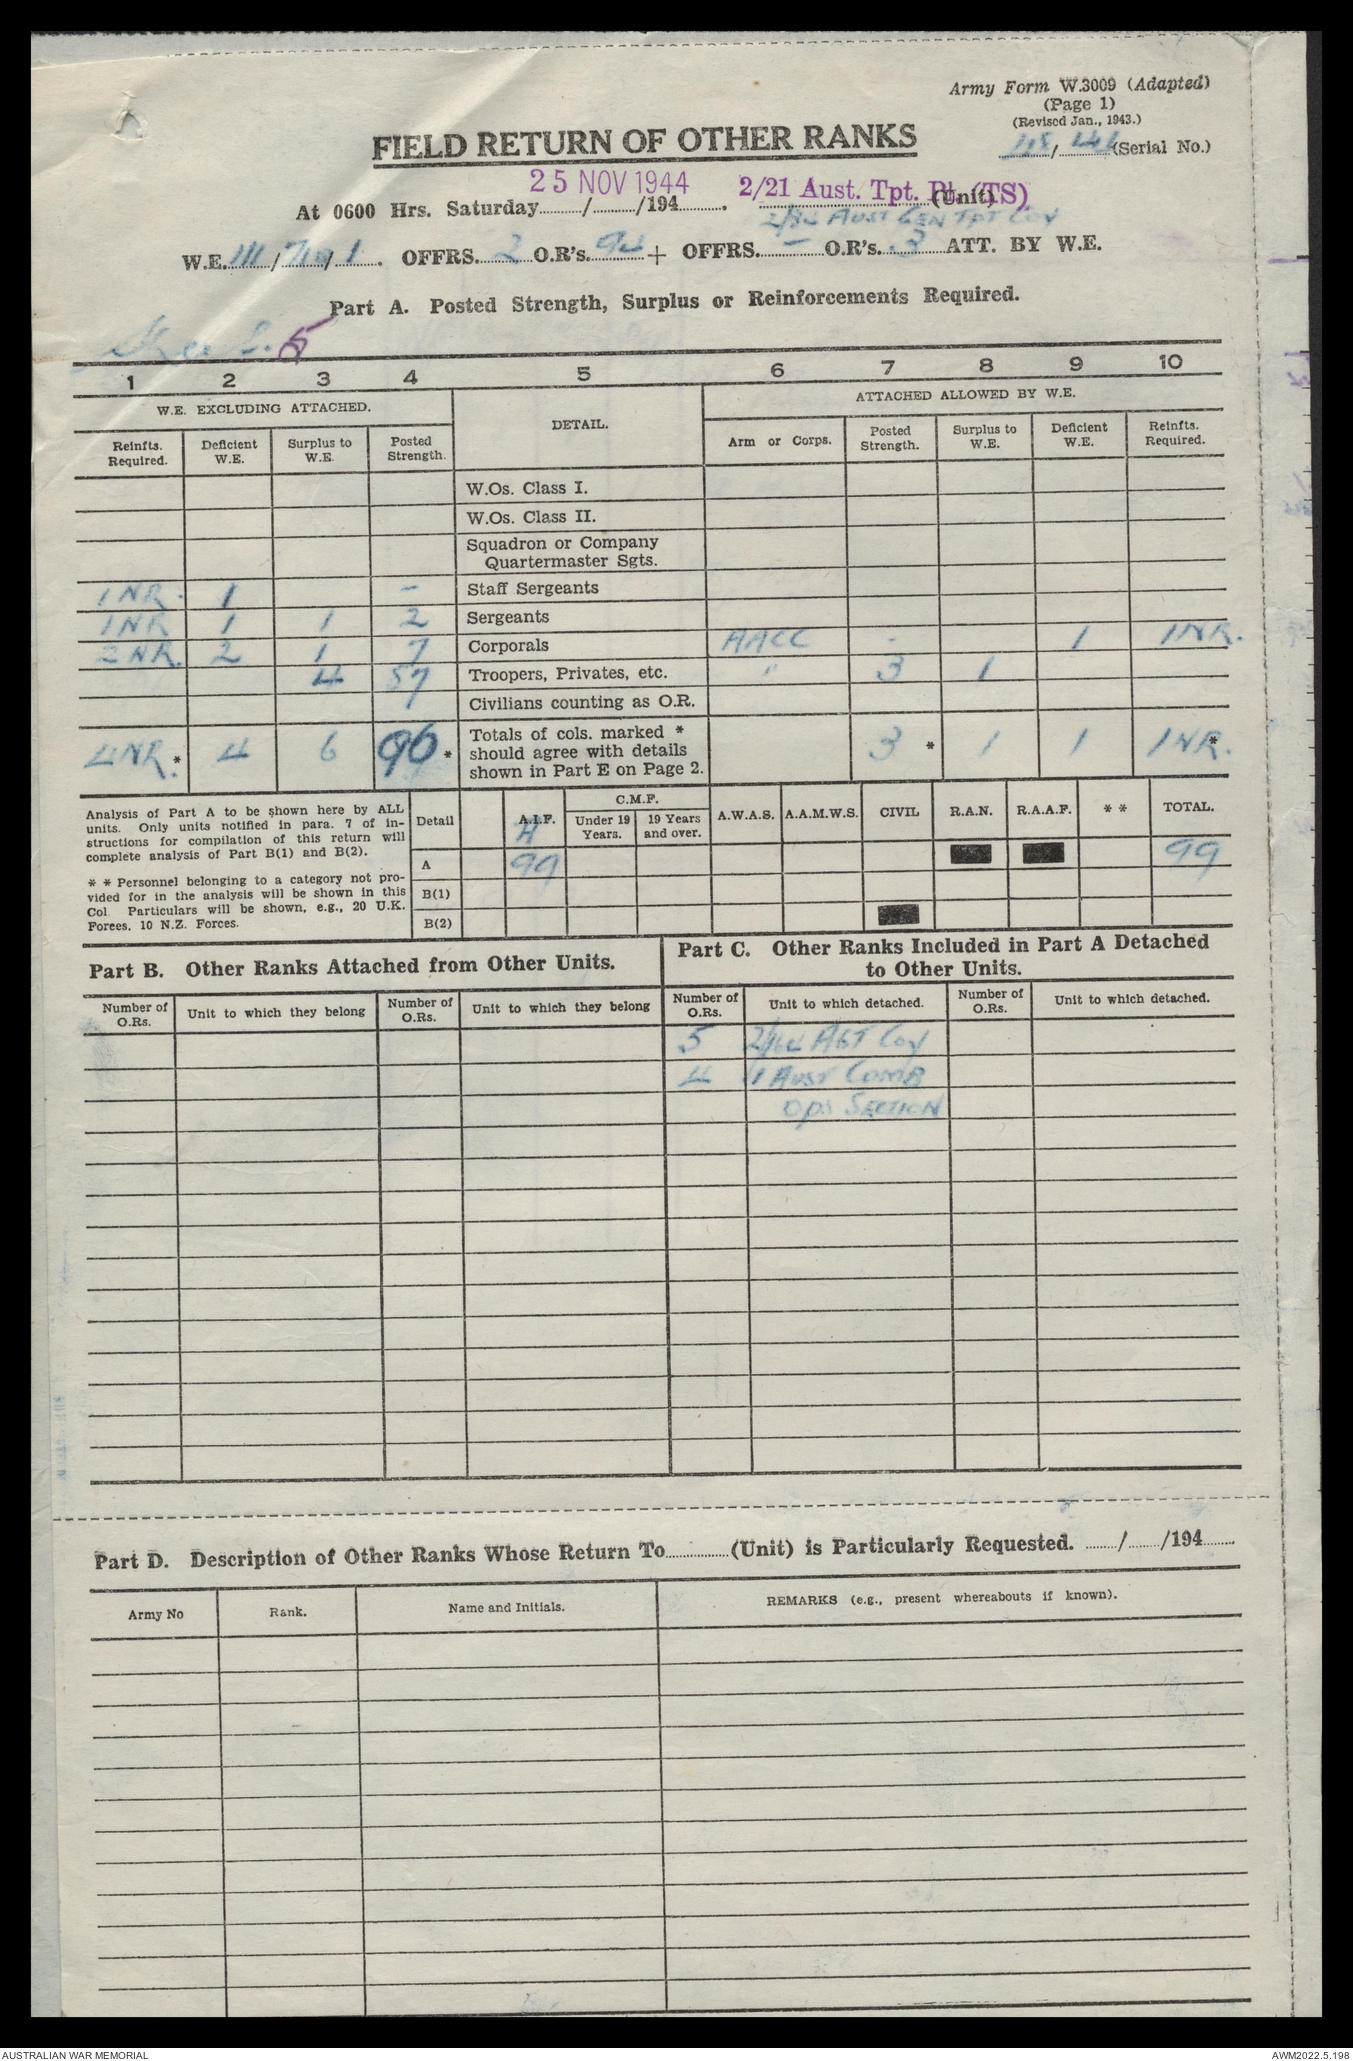 Army Form W.3009 (Adapted)
(Page 1)
(Revised Jan., 1943.)
FIELD RETURN OF OTHER RANKS
/ (Serial No.)
25 NOV 1944 2/21 Aust. Tpt. Pl. (TS)
At 0600 Hrs. Saturday......../......../194........ (Unit)
AUST GEN TPT COY
W.E. 111/ / 1. OFFRS. 2 O.R's. 94 + OFFRS. - O.R's. 3 ATT. BY W.E.
Part A. Posted Strength, Surplus or Reinforcements Required.
5
1 2 3 4 5 6 7 8 9 10
W.E. EXCLUDING ATTACHED. DETAIL. ATTACHED ALLOWED BY W.E.
Reinfts. Required. Deficient W.E. Surplus to W.E. Posted Strength. Arm or Corps. Posted Strength. Surplus to W.E. Deficient W.E. Reinfts. Required.
W.Os. Class I.
W.Os. Class II.
Squadron or Company
Quartermaster Sgts.
1 NR. 1 - Staff Sergeants
1 NR 1 1 2 Sergeants
2 NR. 2 1 7 Corporals AACC - 1 1 NR.
4 87 Troopers, Privates, etc. " 3 1
Civilians counting as O.R.
4 NR. * 4 6 96 * Totals of cols. marked *
should agree with details
shown in Part E on Page 2. 3 * 1 1 1 NR. *
Analysis of Part A to be shown here by ALL
units. Only units notified in para. 7 of in-
structions for compilation of this return will
complete analysis of Part B(1) and B(2).
* * Personnel belonging to a category not pro-
vided for in the analysis will be shown in this
Col. Particulars will be shown, e.g., 20 U.K.
Forces, 10 N.Z. Forces.
Detail A.I.F. C.M.F. A.W.A.S. A.A.M.W.S. CIVIL R.A.N. R.A.A.F. * * TOTAL.
Under 19 Years. 19 Years and over.
A 99 99
B(1)
B(2)
Part B. Other Ranks Attached from Other Units.
Part C. Other Ranks Included in Part A Detached
to Other Units.
Number of O.Rs. Unit to which they belong Number of O.Rs. Unit to which they belong Number of O.Rs. Unit to which detached. Number of O.Rs. Unit to which detached.
5 AGT Coy
4 1 AUST COMB
OPS SECTION
Part D. Description of Other Ranks Whose Return To............(Unit) is Particularly Requested. ......./......./194.......
Army No Rank. Name and Initials. REMARKS (e.g., present whereabouts if known).
AUSTRALIAN WAR MEMORIAL AWM2022.5.198